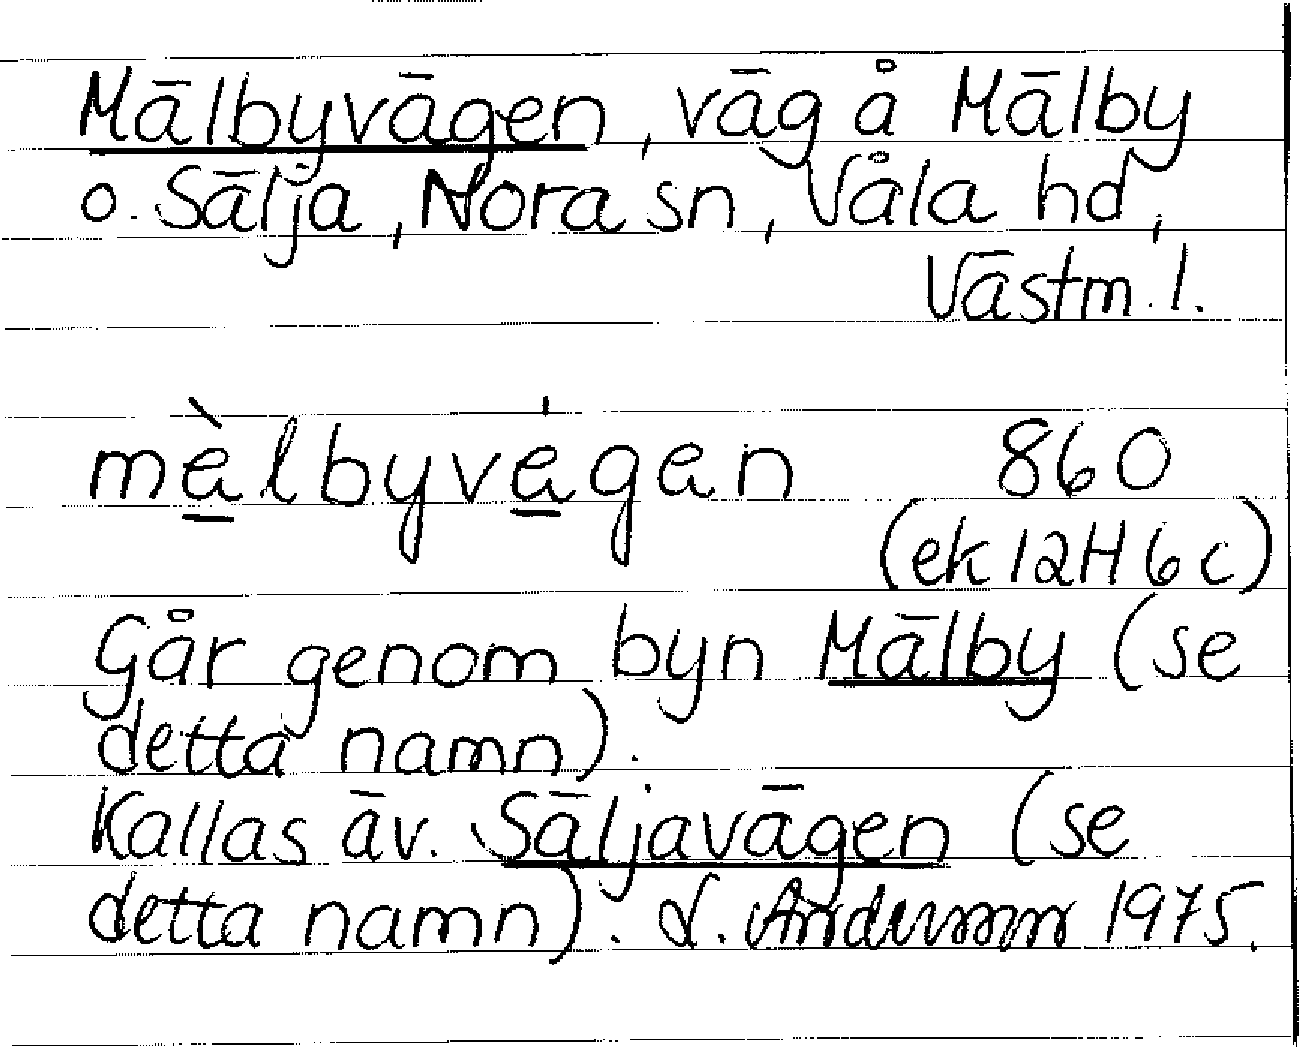 Mälbyvägen, väg å Mälby
o. Sälja, Nora sn, Våla hd,
Västm. l.
mèlbyvégen 860
(ek 12H 6c)
Går genom byn Mälby (se
detta namn).
Kallas äv. Säljavägen (se
detta namn). L. Andersson 1975.